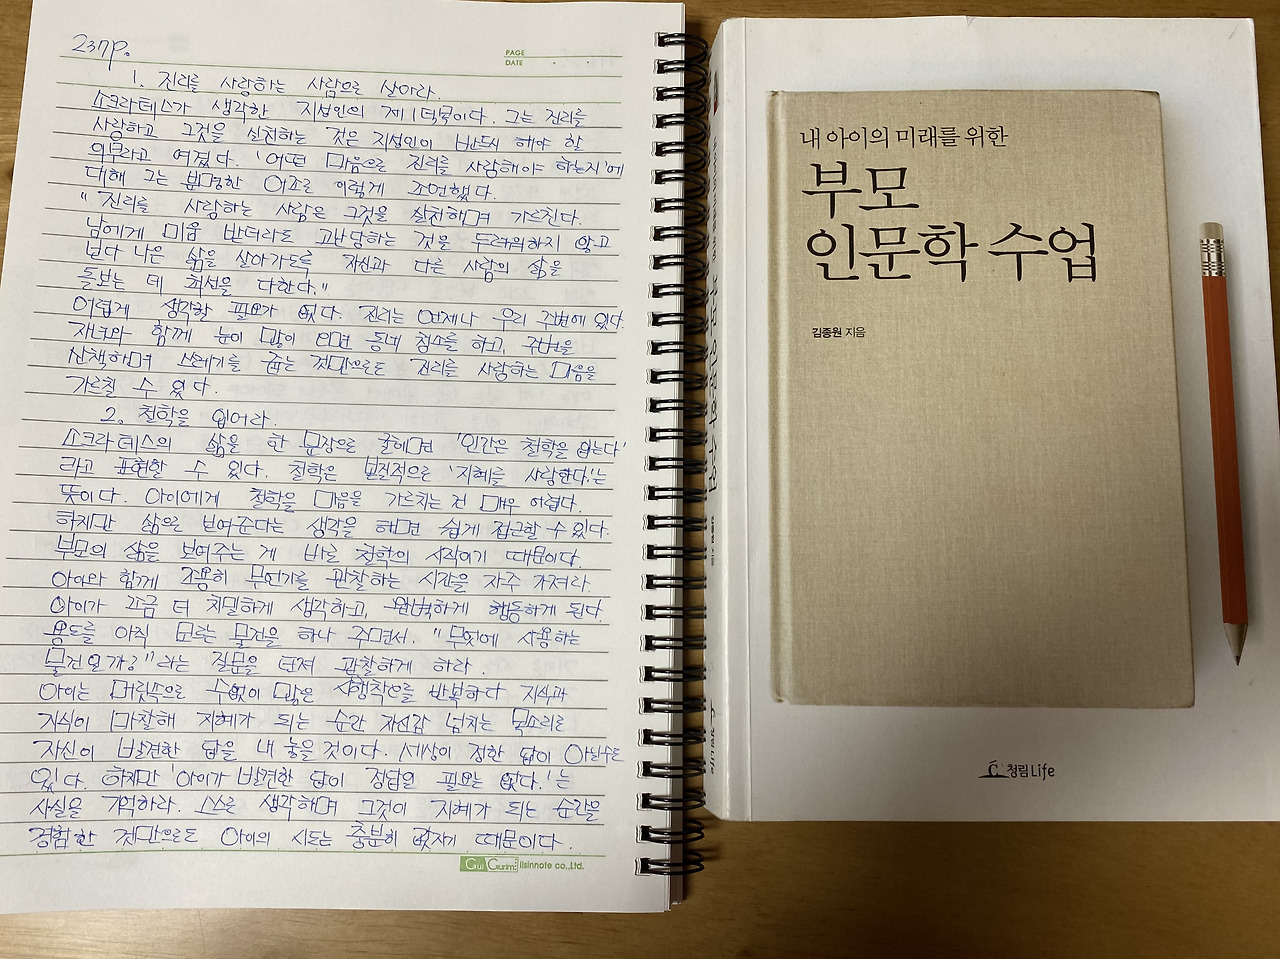 237p.
PAGE
DATE
1. 진리를 사랑하는 사람으로 살아라.
소크라테스가 생각한 지성인의 제1덕목이다. 그는 진리를
사랑하고 그것을 실천하는 것은 지성인이 반드시 해야 할
의무라고 여겼다. '어떤 마음으로 진리를 사랑해야 하는지'에
대해 그는 분명한 어조로 이렇게 조언했다.
" 진리를 사랑하는 사람은 그것을 실천하며 가르친다.
남에게 미움 받더라도 고난당하는 것을 두려워하지 않고
보다 나은 삶을 살아가도록 자신과 다른 사람의 삶을
돌보는 데 최선을 다한다."
어렵게 생각할 필요가 없다. 진리는 언제나 우리 주변에 있다.
자녀와 함께 눈이 많이 오면 동네 청소를 하고, 주변을
산책하며 쓰레기를 줍는 것만으로도 진리를 사랑하는 마음을
가르칠 수 있다.
2. 철학을 입어라.
소크라테스의 삶을 한 문장으로 굳이하면 '인간은 철학을 입는다'
라고 표현할 수 있다. 철학은 본질적으로 '지혜를 사랑한다.'는
뜻이다. 아이에게 철학을 마음을 가르치는 건 매우 어렵다.
하지만 삶으로 보여준다는 생각을 하면 쉽게 접근할 수 있다.
부모의 삶을 보여주는 게 바로 철학의 시작이기 때문이다.
아이와 함께 조용히 무언가를 관찰하는 시간을 자주 가져라.
아이가 조금 더 치밀하게 생각하고, 완벽하게 행동하게 된다.
용도를 아직 모르는 물건을 하나 주면서. "무엇에 사용하는
물건일까?" 라는 질문을 던져 관찰하게 하라.
아이는 머릿속으로 수없이 많은 시행착오를 반복하다 지식과
지식이 마찰해 지혜가 되는 순간 자신감 넘치는 목소리로
자신이 발견한 답을 내 놓을 것이다. 세상이 정한 답이 아닐수도
있다. 하지만 '아이가 발견한 답이 정답일 필요는 없다.'는
사실을 기억하라. 스스로 생각하며 그것이 지혜가 되는 순간을
경험한 것만으로도 아이의 시도는 충분히 값지기 때문이다.
Gui Gurim ilsinnote co.,Ltd.
내 아이의 미래를 위한
부모
인문학 수업
김종원 지음
청림Life